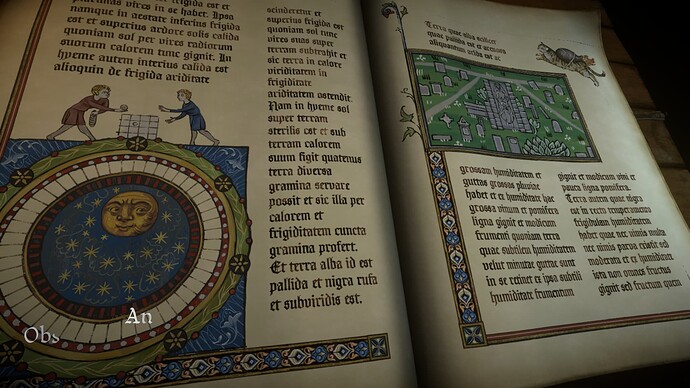 plurimas vires in se habet. Ipsa
namque in aestate inferius frigida
est et superius ardore solis calida
quoniam sol per vires radiorum
suorum calorem tunc gignit. In
hyeme autem interius calida est
alioquin de frigida ariditate
scinderetur et
superius frigida est
quoniam sol tunc
vires suas super
terram subtrahit et
sic terra in calore
viriditatem in
frigiditate
ariditatem ostendit.
Nam in hyeme sol
super terram
sterilis est et sub
terram calorem
suum figit quatenus
terra diversa
gramina servare
possit et sic illa per
calorem et
frigiditatem cuncta
gramina profert.
Et terra alba id est
pallida et nigra rufa
et subviridis est.
Obs
An
Terra quae alba scilicet
quae pallida est et arenosa
aliquantum arida est ac
grossam humiditatem et
guttas grossas pluviae
habet et ex humiditate hac
grossa vinum et pomifera
ligna gignit et modicum
frumenti quoniam terra
quae subtilem humiditatem
velut minutae guttae sunt
in se retinet et ipsa subtili
humiditate frumentum
gignit et modicum vini et
pauca ligna pomifera.
Terra autem quae nigra
est in recto temperamento
frigidulam humiditatem
habet quae nec nimis multa
nec nimis parva existit sed
moderata et ex humiditate
ista non omnes fructus
gignit sed fructum quem